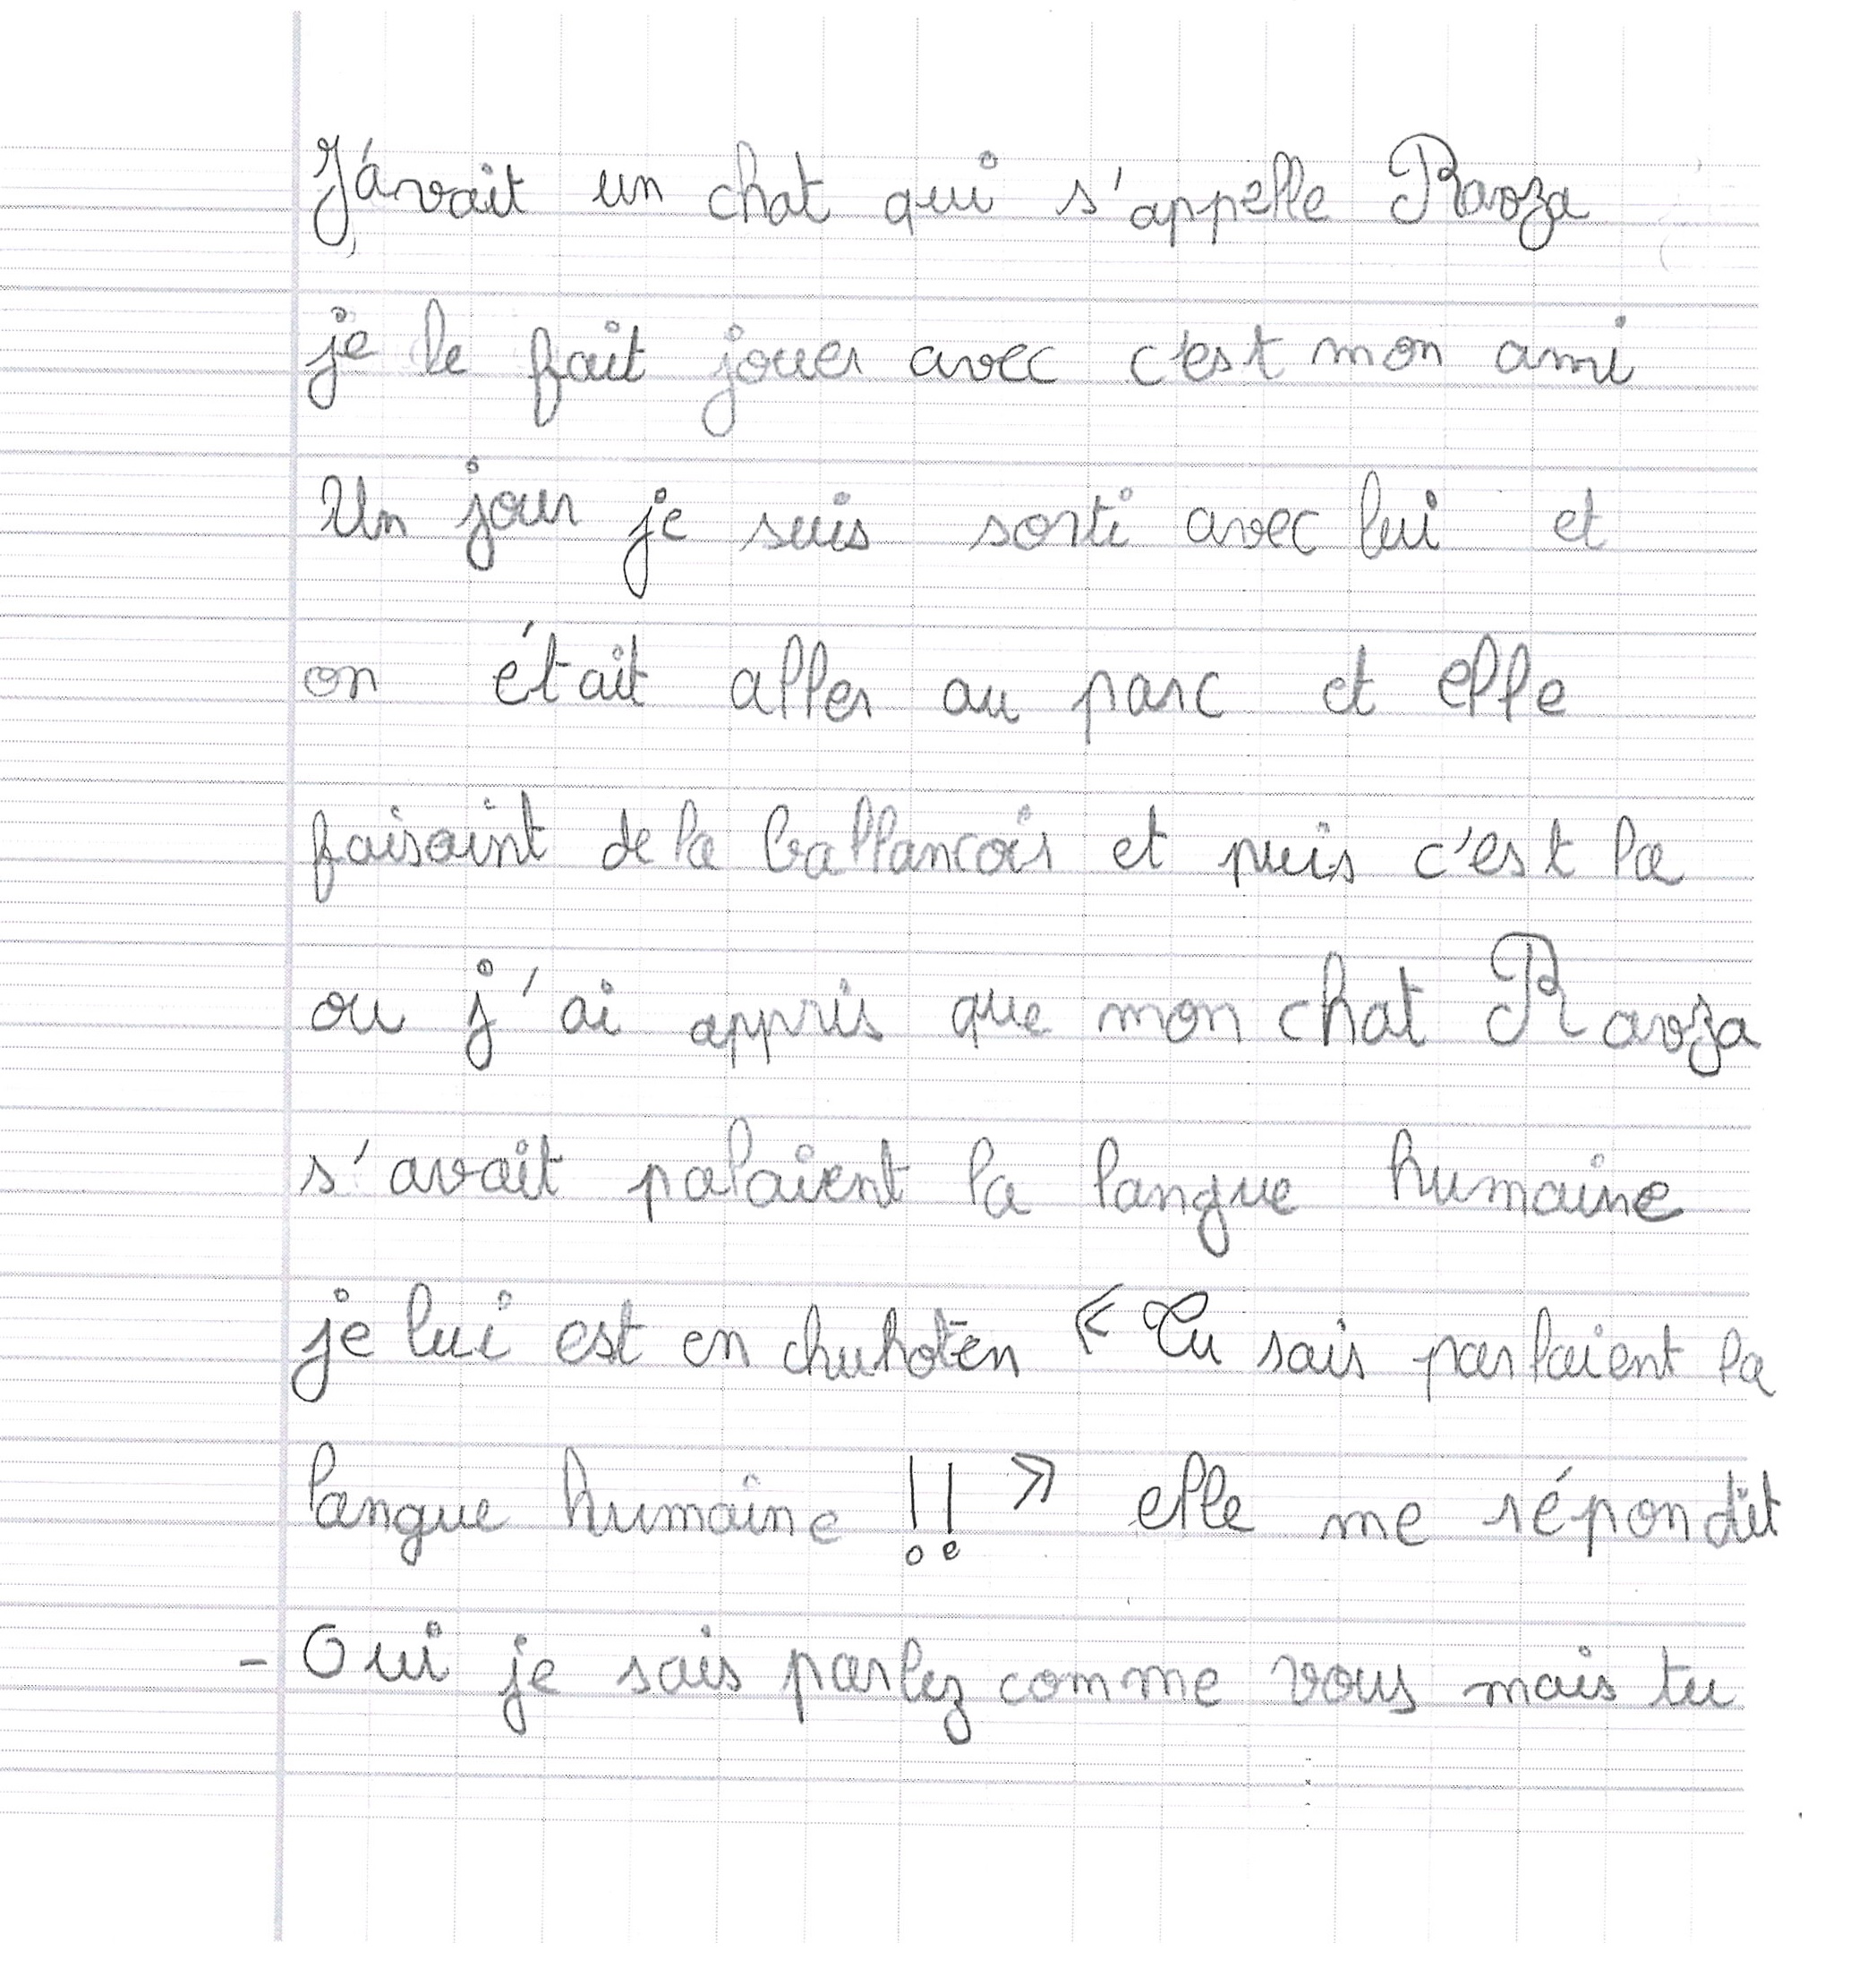 J'avait un chat qui s'appelle Ravza
je le fait jouer avec c'est mon ami
Un jour je suis sorti avec lui et
on était aller au parc et elle
faisaint de la ballancois et puis c'est la
ou j'ai appris que mon chat Ravza
s'avait palaient la langue humaine
je lui est en chuhoten « Tu sais parlaient la
langue humaine !! » elle me répondit
- Oui je sais parlez comme vous mais tu